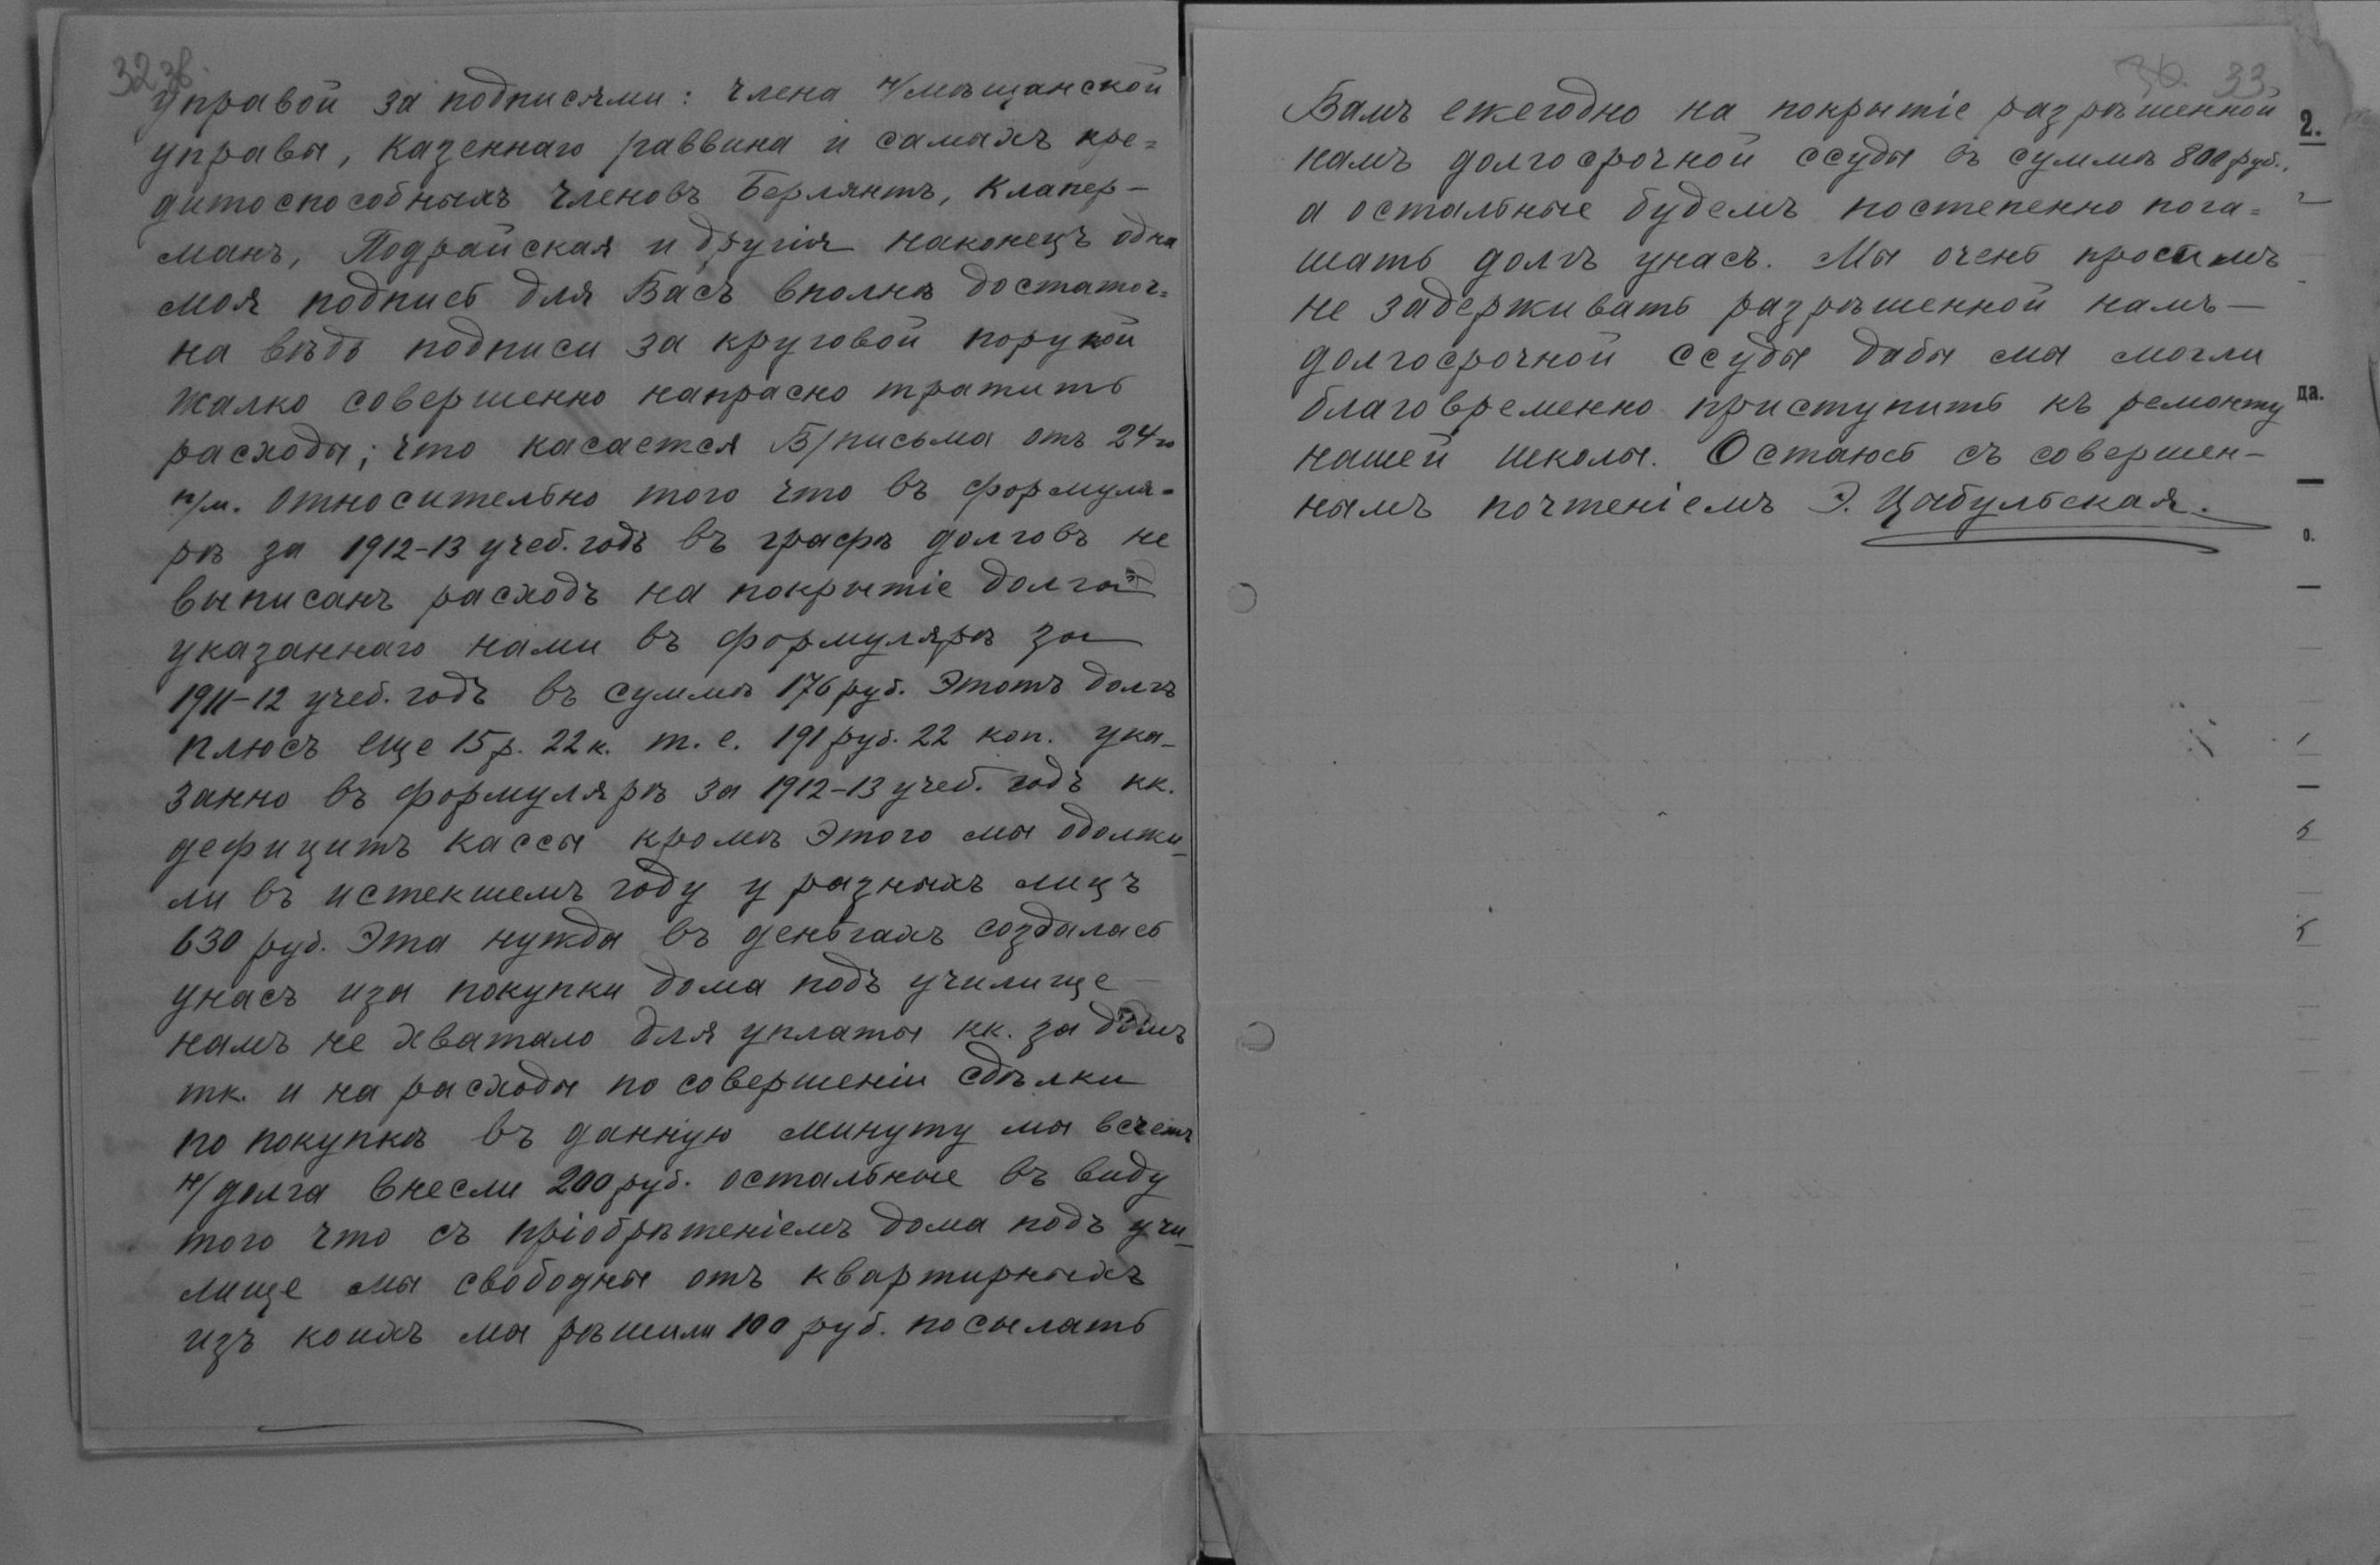 32 36.
управой за подписями: члена н/мѣщанской
управы, казеннаго раввина и самыхъ кре=
дитоспособныхъ членовъ Берлянтъ, Клапер-
манъ, Подрайская и другія наконецъ одна
моя подпись для Васъ вполнѣ достаточ=
на вѣдь подписи за круговой порукой
жалко совершенно напрасно тратить
расходы; что касается В/письма отъ 24го
н/м. относительно того что въ формуля-
рѣ за 1912-13 учеб. годъ въ графѣ долговъ не
выписанъ расходъ на покрытіе долга
указаннаго нами въ формулярѣ за
1911-12 учеб. годъ въ суммѣ 176 руб. Этотъ долгъ
плюсъ еще 15 р. 22 к. т. е. 191 руб. 22 коп. ука-
занно въ формулярѣ за 1912-13 учеб. годъ кк.
дефицитъ кассы кромѣ этого мы одолжи-
ли въ истекшемъ году у разныхъ лицъ
630 руб. Эта нужда въ деньгахъ создалась
унасъ иза покупки дома подъ училище
намъ не хватало для уплаты кк. за домъ
тк. и на расходы по совершеніи сдѣлки
по покупкѣ въ данную минуту мы всчетъ
н/долга внесли 200 руб. остальные въ виду
того что съ пріобрѣтеніемъ дома подъ учи-
лище мы свободны отъ квартирныхъ
изъ коихъ мы рѣшили 100 руб. посылать
36. 33
Вамъ ежегодно на покрытіе разрѣшенной
намъ долгосрочной ссуды въ суммѣ 800 руб.,
а остальные будемъ постепенно пога=
шать долгъ унасъ. Мы очень просимъ
не задерживать разрѣшенной намъ—
долгосрочной ссуды дабы мы могли
благовременно приступить къ ремонту
нашей школы. Остаюсь съ совершен-
нымъ почтеніемъ Э. Цыбульская.
2.
да.
о.